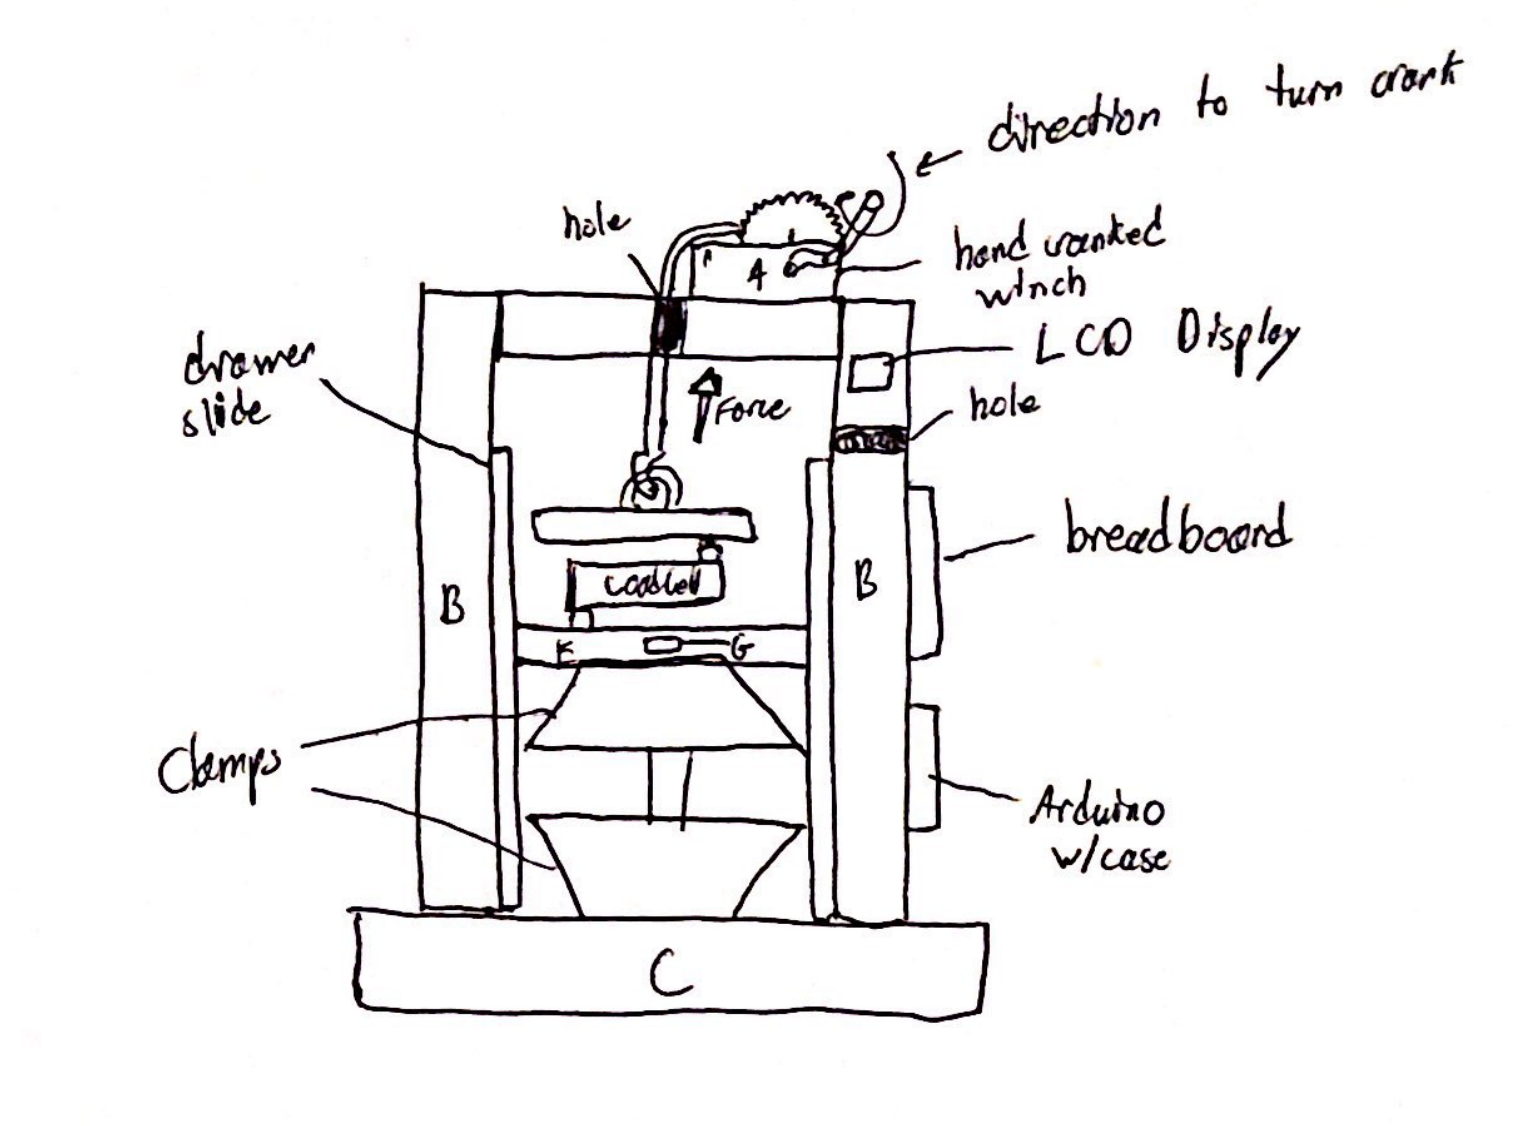 direction to turn crank
hole
hand cranked
winch
A
LCD Display
drawer
slide
Force
hole
breadboard
B
Loadcell
B
E
G
Clamps
Arduino
w/case
C